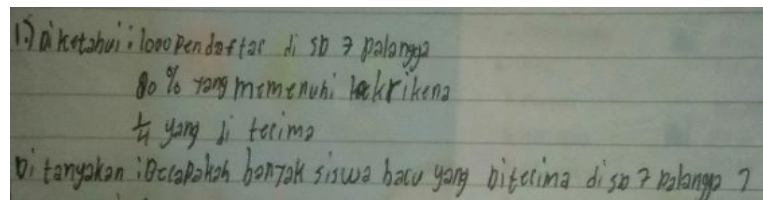 1.) Diketahui : 1000 Pendaftar di SD 7 Palangga
80 % yang memenuhi krikena
1/4 yang di terima
Di tanyakan : Berapakah banyak siswa baru yang diterima di SD 7 Palangga ?